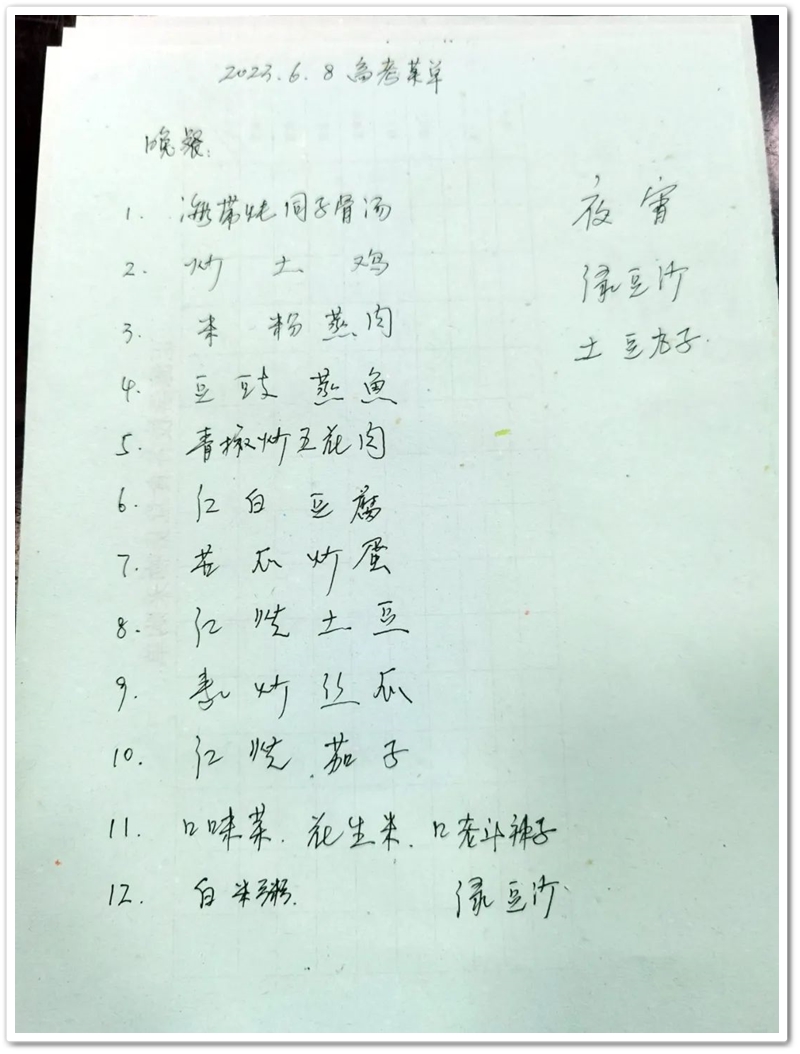 2023.6.8 高考菜单
晚餐:
1. 海带炖同子骨汤
2. 炒土鸡
3. 米粉蒸肉
4. 豆豉蒸魚
5. 青椒炒五花肉
6. 红白豆腐
7. 苦瓜炒蛋
8. 红烧土豆
9. 素炒丝瓜
10. 红烧茄子
11. 口味菜. 花生米.
12. 白米粥. 绿豆沙.
夜宵
绿豆沙
土豆丸子.